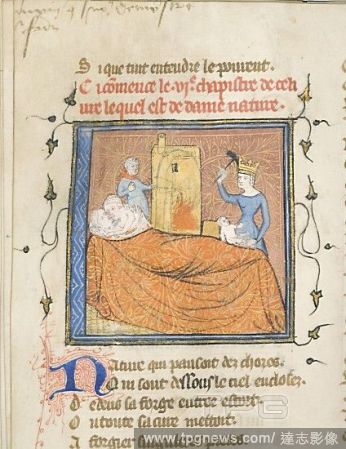 Si que tuit entendre le peuvent.
Ci cōmence le .vi.e chapistre de ce li
ure lequel est de dame nature.
Nature qui pansoit des choses
Qui sont dessous le ciel encloses
Dedens sa forge entree estoit
Ou toute sa cure metoit
A forgier singulieres pieces
www.tpgnews.com / 達志影像